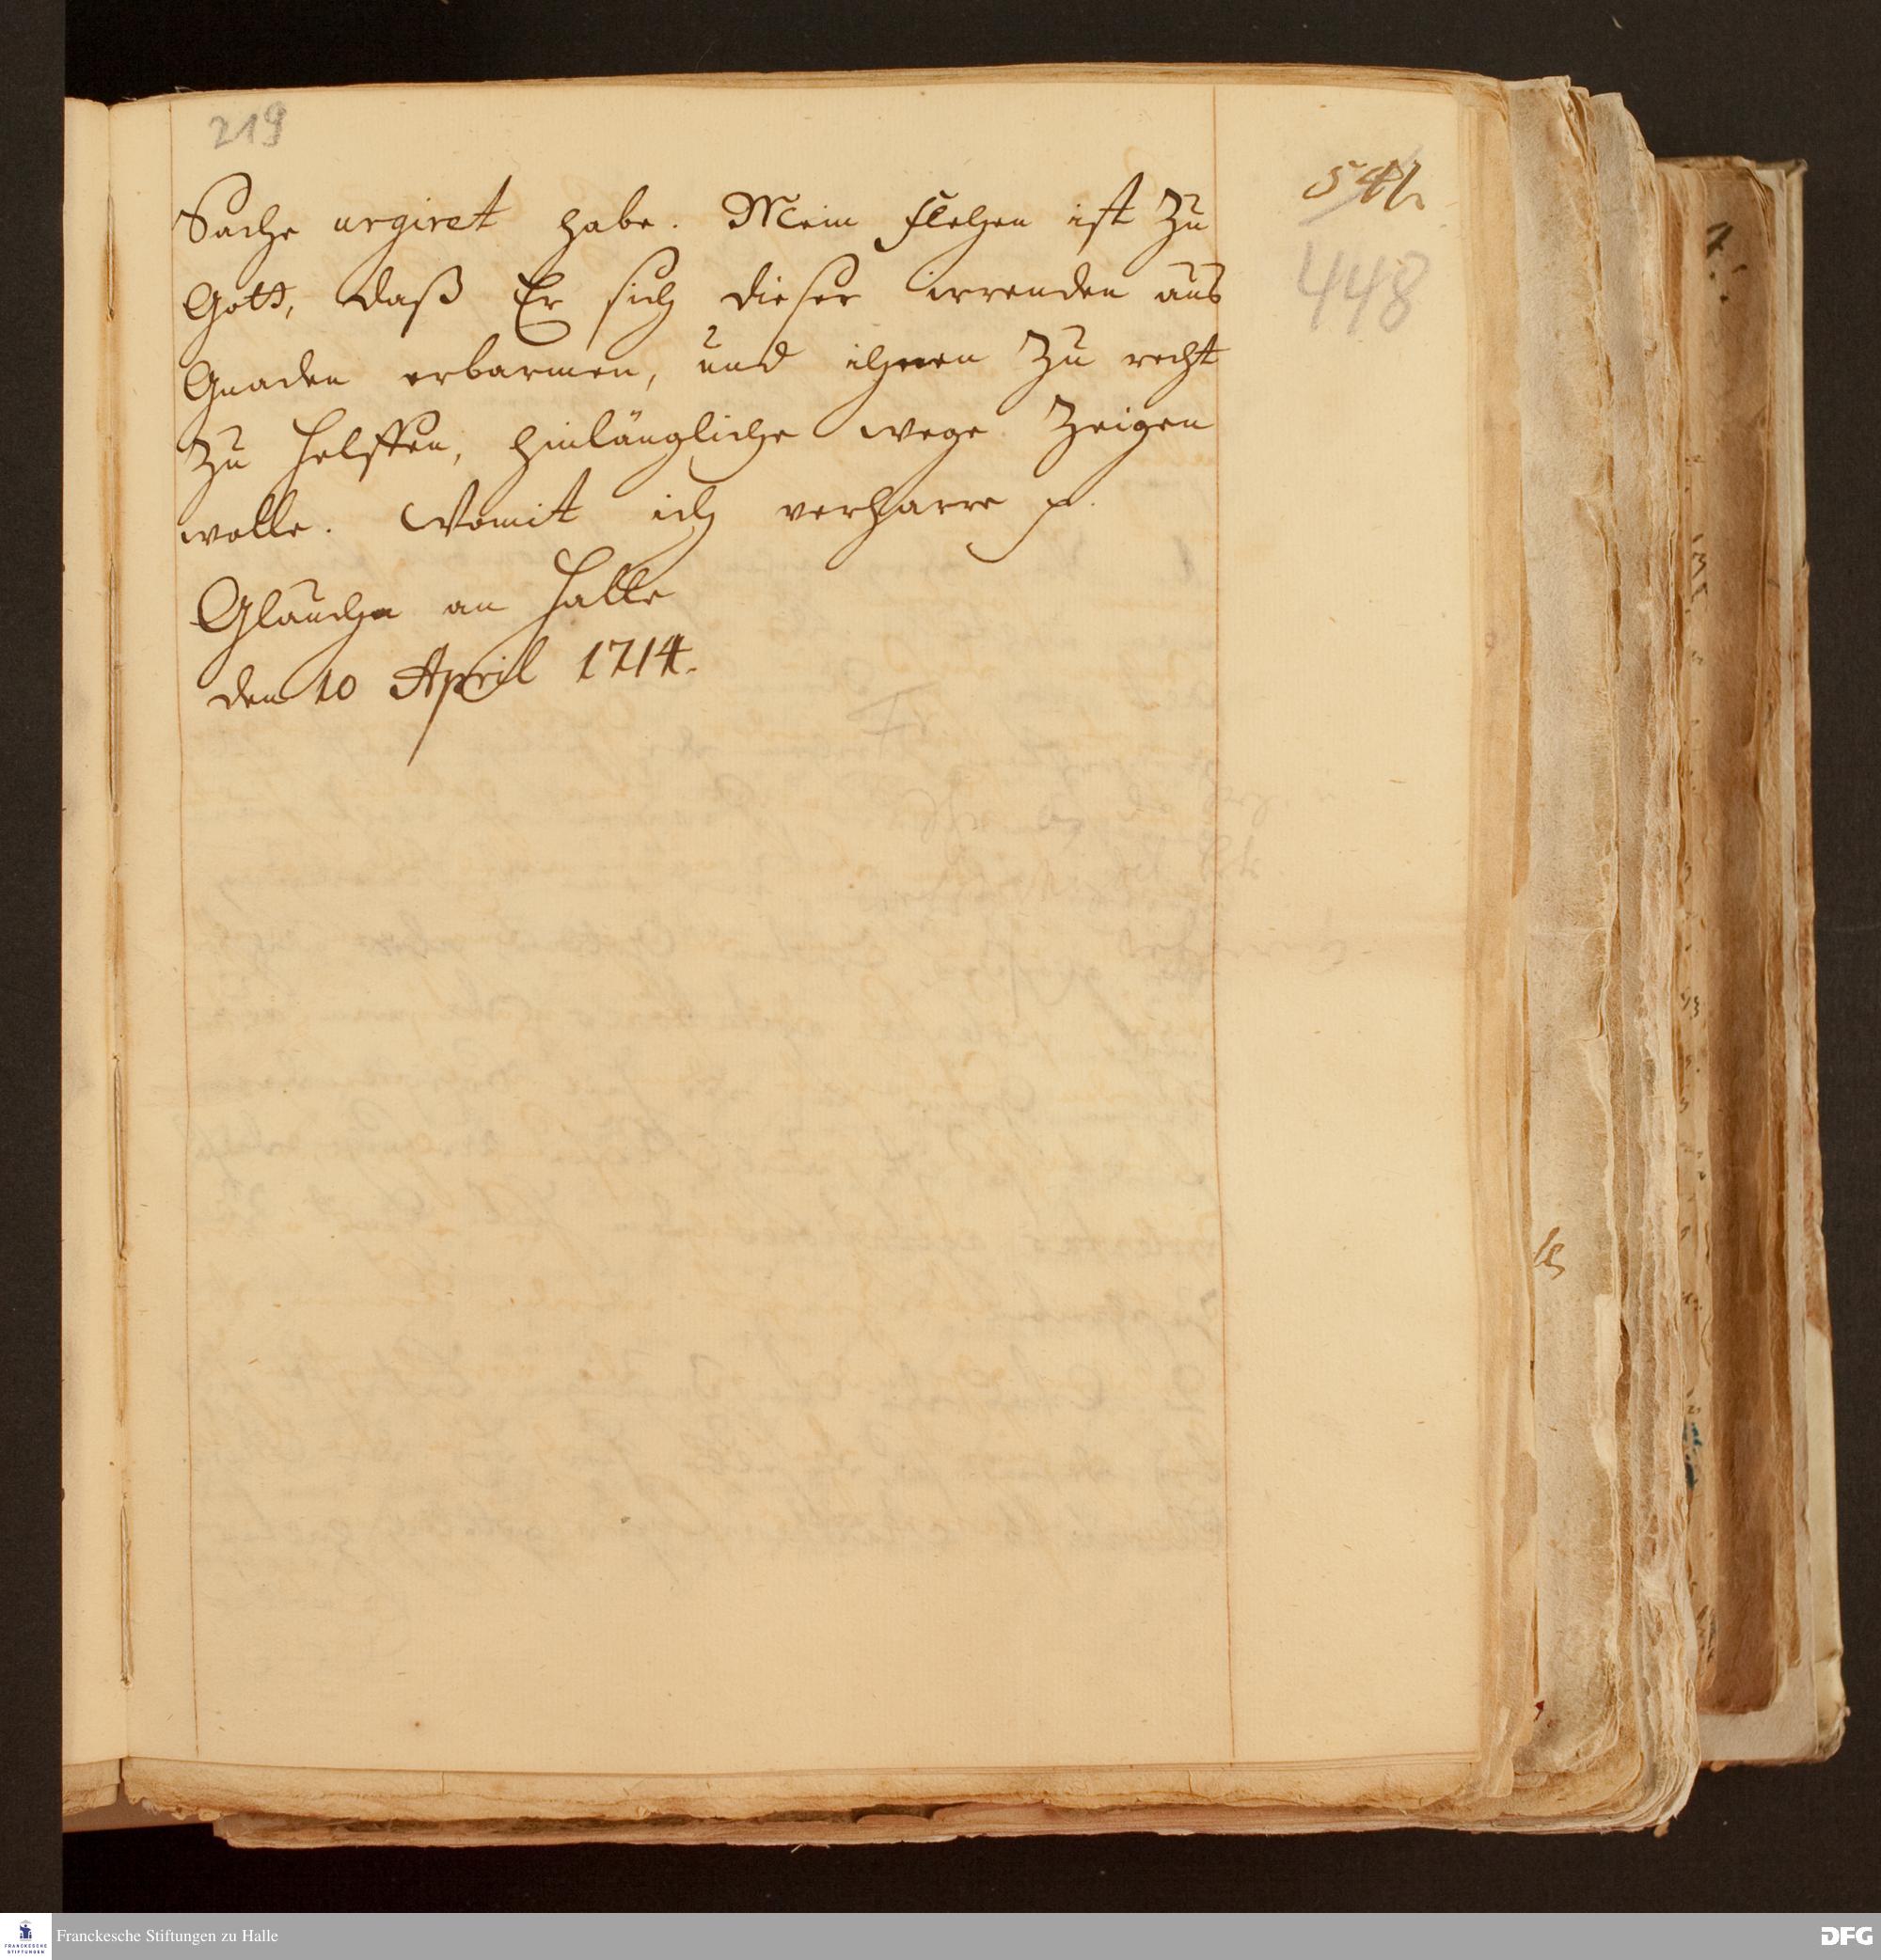 219
448
Sache urgiret habe. Mein flehen ist zu
Gott, daß Er sich dieser irrenden aus
Gnaden erbarmen, und ihnen zu recht
zu helffen, hinlängliche wege zeigen
wolle. Womit ich verharre p.
Glaucha an Halle
den 10 April 1714.
FRANCKESCHE STIFTUNGEN
Franckesche Stiftungen zu Halle
DFG